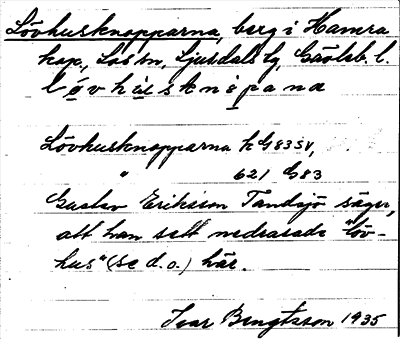 Lövhusknopparna, berg i Hamra
kap., Los sn, Ljusdals tg, Gävleb. l.
lö́vhùsknöpana
Lövhusknopparna k G83SV,
" 621 G83
Gustav Eriksson Tandsjö säger,
att han sett nedrasade "löv-
hus" (se d.o.) här.
Ivar Bengtsson 1935